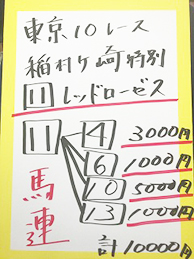 東京10レース
稲村ケ崎特別
11 レッドローゼス
11 4 3000円
6 1000円
10 5000円
13 1000円
馬連
計10000円